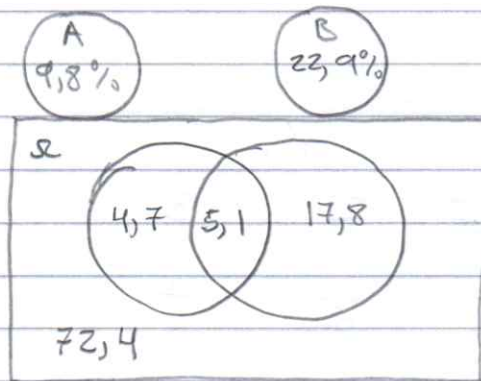 A B
9,8% 22,9%
Ω
4,7 5,1 17,8
72,4